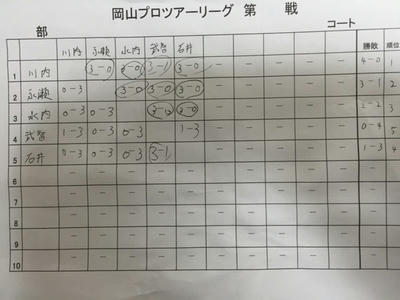 岡山プロツアーリーグ 第 戦
部 コート
川内 永瀬 水内 武智 石井 勝敗 順位
1 川内 3-0 3-0 3-1 3-0 4-0 1
2 永瀬 0-3 3-0 3-0 3-0 3-1 2
3 水内 0-3 0-3 3-0 3-0 2-2 3
4 武智 1-3 0-3 0-3 1-3 0-4 5
5 石井 0-3 0-3 0-3 3-1 1-3 4
6 - - - - - - - - - - -
7 - - - - - - - - - - -
8 - - - - - - - - - - -
9 - - - - - - - - - - -
10 - - - - - - - - - - -